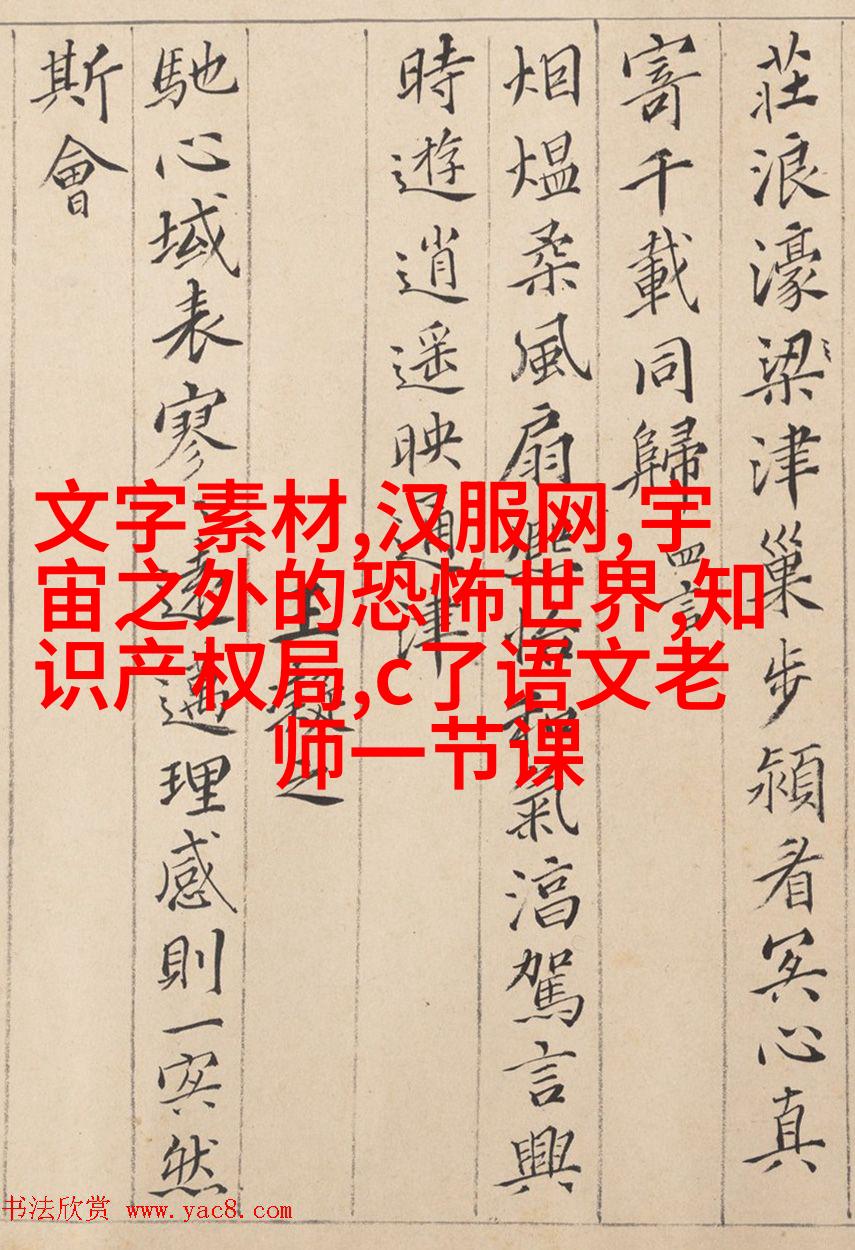 莊浪濠梁津巢步潁冥心真
寄千載同歸 四言
烟熅柔風扇熙怡和氣淳駕言興
時遊逍遥映通津
王凝之
馳心域表寥〻遠邁理感則一冥然
斯會
文字素材,汉服网,宇
宙之外的恐怖世界,知
识产权局,c了语文老
师一节课
书法欣赏 www.yac8.com